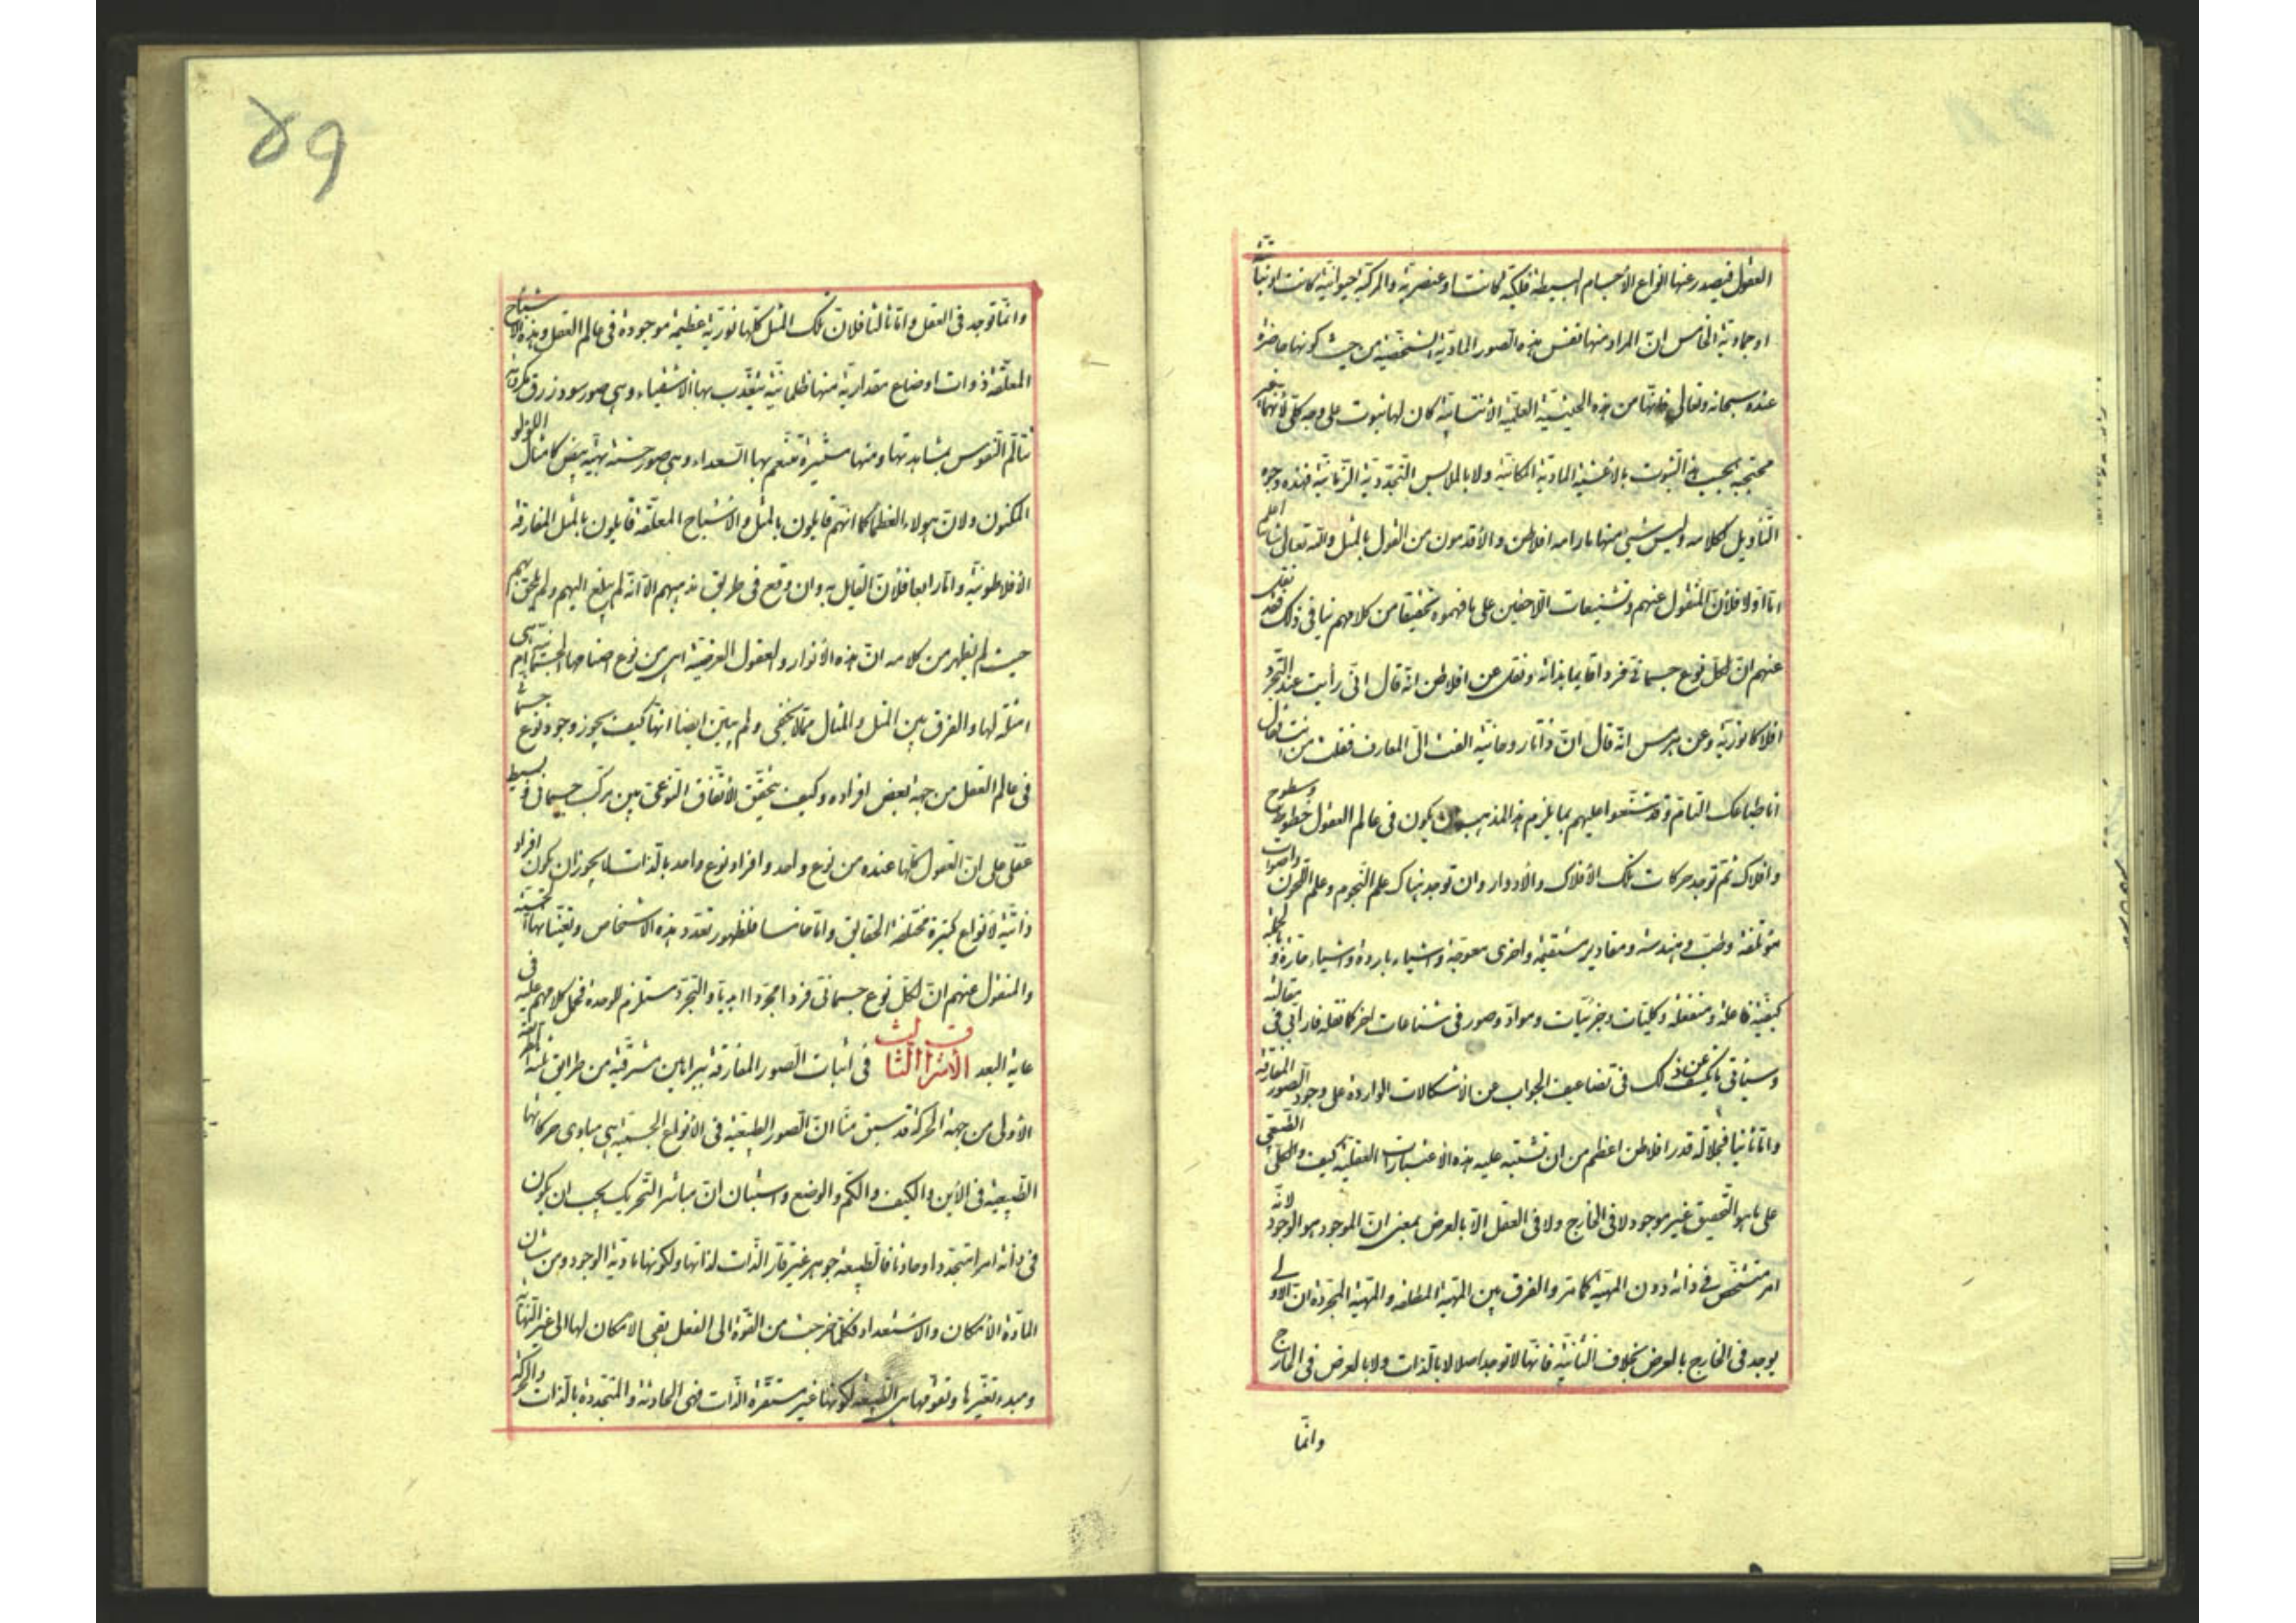 العقول فيصدر عنها انواع الأجسام البسيطة فلكية كانت او عنصرية والمركبة حيوانية كانت او نباتية
او جمادية الخامس انّ المراد منها نفس هذه الصور المادية الشخصية من حيث كونها حاضرة
عنده سبحانه وتعالى فانّها من هذه الحيثية العلمية الأنتسابية كان لها ثبوت على وجه كلّى لأنّها غير
محتجبة بحسب هذا الثبوت بالأغشية المادية المكانية ولا بالملابس التجددية الزمانية فهذه وجوه
التأويل لكلامه وليس شيئ منها ما رامه افلاطن والأقدمون من القول بالمثل والله تعالى اعلم
امّا اوّلا فلأنّ المنقول عنهم وتشنيعات اللاحقين على ما فهموه تحقيقا من كلامهم ينافى ذلك فقد نقل
عنهم انّ لكلّ نوع جسمانى فردا قايما بذاته ونقل عن افلاطن انّه قال انّى رأيت عند التجرد
افلاكا نورية وعن هرمس انّه قال انّ ذاتا روحانية القت الىّ المعارف فقلت من انت فقال
انا طباعك التام وقد شنّعوا عليهم بما يلزم هذا المذهب من ان يكون فى عالم العقول خطوط وسطوح
وافلاك ثم توجد حركات تلك الأفلاك والأدوار وان توجد هناك علم النجوم وعلم اللحون واصوات
مؤتلفة وطبّ وهندسة ومقادير مستقيمة واخرى معوجة واشياء باردة واشياء حارّة وبالجملة
كيفيّة فاعلة ومنفعلة وكليّات وجزئيّات ومواد وصور فى شناعات اخر كما نقله فارابى فى مقالته
وسيأتى ما يكشف عن ذلك فى تضاعيف الجواب عن الاشكالات الواردة على وجود الصور المفارقة
وامّا ثانيا فجلالة قدر افلاطن اعظم من ان تشتبه عليه هذه الاعتبارات العقلية كيف والكلّى الطبيعى
على ما هو التحقيق غير موجود لا فى الخارج ولا فى العقل الّا بالعرض بمعنى انّ الموجود هو الوجود لانّه
امر متشخّص فى ذاته دون المهيّة كما مرّ والفرق بين المهيّة المطلقة والمهيّة المجردة انّ الاولى
يوجد فى الخارج بالعرض بخلاف الثانية فانّها لا توجد اصلا لا بالذات ولا بالعرض فى الخارج
وانّما
٥٩
وانّما توجد فى العقل وامّا ثالثا فلانّ تلك المثل كلّها نوريّة عظيمة موجودة فى عالم العقل وهذه الاشباح
المعلّقة ذوات اوضاع مقدارية منها ظلمانية يتعذّب بها الاشقياء وهى صور سود زرق مكروهة
تتألّم النفوس بمشاهدتها ومنها مستنيرة يتنعّم بها السعداء وهى صور حسنة بهيّة بيض كامثال اللؤلؤ
المكنون ولانّ هؤلاء العظماء كما انّهم قايلون بالمثل والأشباح المعلّقة قايلون بالمثل المفارقة
الأفلاطونية وامّا رابعا فلأنّ القايل به وان وقع فى طريق مذهبهم الّا انّه لم يبلغ اليهم ولم يلحق بهم
حيث لم يظهر من كلامه انّ هذه الأنوار والعقول العرضية اهى من نوع اصنامها الجسمانية ام هى
امثلة لها والفرق بين المثل والمثال ممّا لا يخفى ولم يبيّن ايضا انّها كيف يجوز وجود نوع جسمانى
فى عالم العقل من جهة بعض افراده وكيف يتحقق الأتفاق النوعى بين مركب جسمانى وبسيط
عقلى على انّ العقول كلّها عنده من نوع واحد وافراد نوع واحد بالذات لا يجوز ان يكون افراد
ذاتيّة لأنواع كثيرة مختلفة الحقايق وامّا خامسا فلظهور تعدد هذه الاشخاص وتعيّناتها الحسّية
والمنقول عنهم انّ لكلّ نوع جسمانى فردا مجردا ابديا والتجرد مستلزم للوحدة فحمل كلامهم عليه فى
غاية البعد الأشراق الثالث فى اثبات الصور المفارقة ببراهين مشرقية من طرايق ثلثة الطريقة
الأولى من جهة الحركة قد سبق منّا انّ الصور الطبيعية فى الأنواع الجسمية هى مبادى حركاتها
الطبيعية فى الأين والكيف والكم والوضع واستبان انّ مباشر التحريك يجب ان يكون
فى ذاته امرا متجددا وحادثا فالطبيعة جوهر غير قارّ الذات لذاتها ولكونها مادية الوجود ومن شأن
المادة الأمكان والأستعداد فكلّما خرجت من القوة الى الفعل بقى الامكان لها الى غير النهاية
ومبدء تغيّرها وتفوقها هى الطبيعة لكونها غير مستقرة الذات فهى الحادثة والمتجددة بالذات والحركة